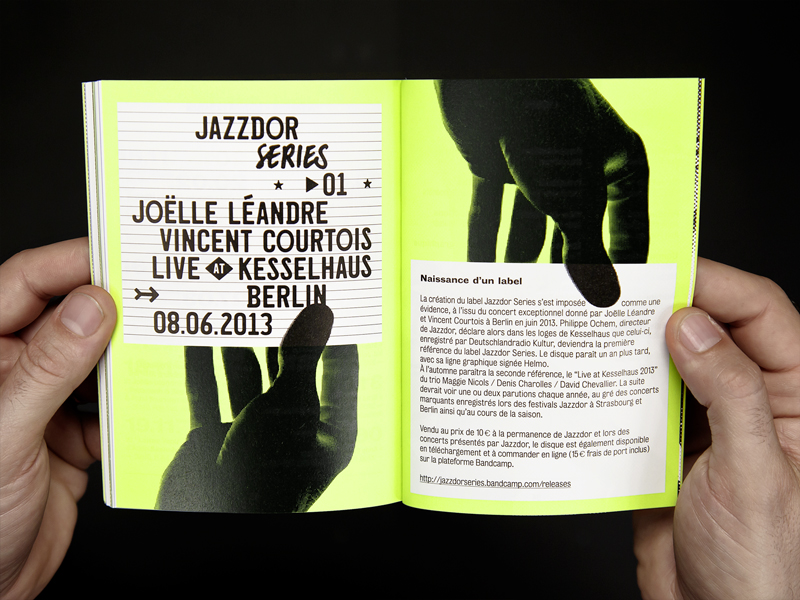 JAZZDOR
SERIES
01
JOËLLE LÉANDRE
VINCENT COURTOIS
LIVE AT KESSELHAUS
BERLIN
08.06.2013
Naissance d'un label
La création du label Jazzdor Series s'est imposée comme une
évidence, à l'issu du concert exceptionnel donné par Joëlle Léandre
et Vincent Courtois à Berlin en juin 2013. Philippe Ochem, directeur
de Jazzdor, déclare alors dans les loges de Kesselhaus que celui-ci,
enregistré par Deutschlandradio Kultur, deviendra la première
référence du label Jazzdor Series. Le disque paraît un an plus tard,
avec sa ligne graphique signée Helmo.
À l'automne paraîtra la seconde référence, le "Live at Kesselhaus 2013"
du trio Maggie Nicols / Denis Charolles / David Chevallier. La suite
devrait voir une ou deux parutions chaque année, au gré des concerts
marquants enregistrés lors des festivals Jazzdor à Strasbourg et
Berlin ainsi qu'au cours de la saison.
Vendu au prix de 10 € à la permanence de Jazzdor et lors des
concerts présentés par Jazzdor, le disque est également disponible
en téléchargement et à commander en ligne (15 € frais de port inclus)
sur la plateforme Bandcamp.
http://jazzdorseries.bandcamp.com/releases